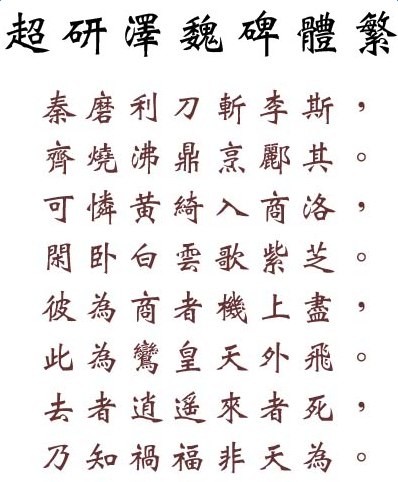 超研澤魏碑體繁
秦磨利刀斬李斯，
齊燒沸鼎烹酈其。
可憐黃綺入商洛，
閑卧白雲歌紫芝。
彼為商者機上盡，
此為鸞皇天外飛。
去者逍遙來者死，
乃知禍福非天為。